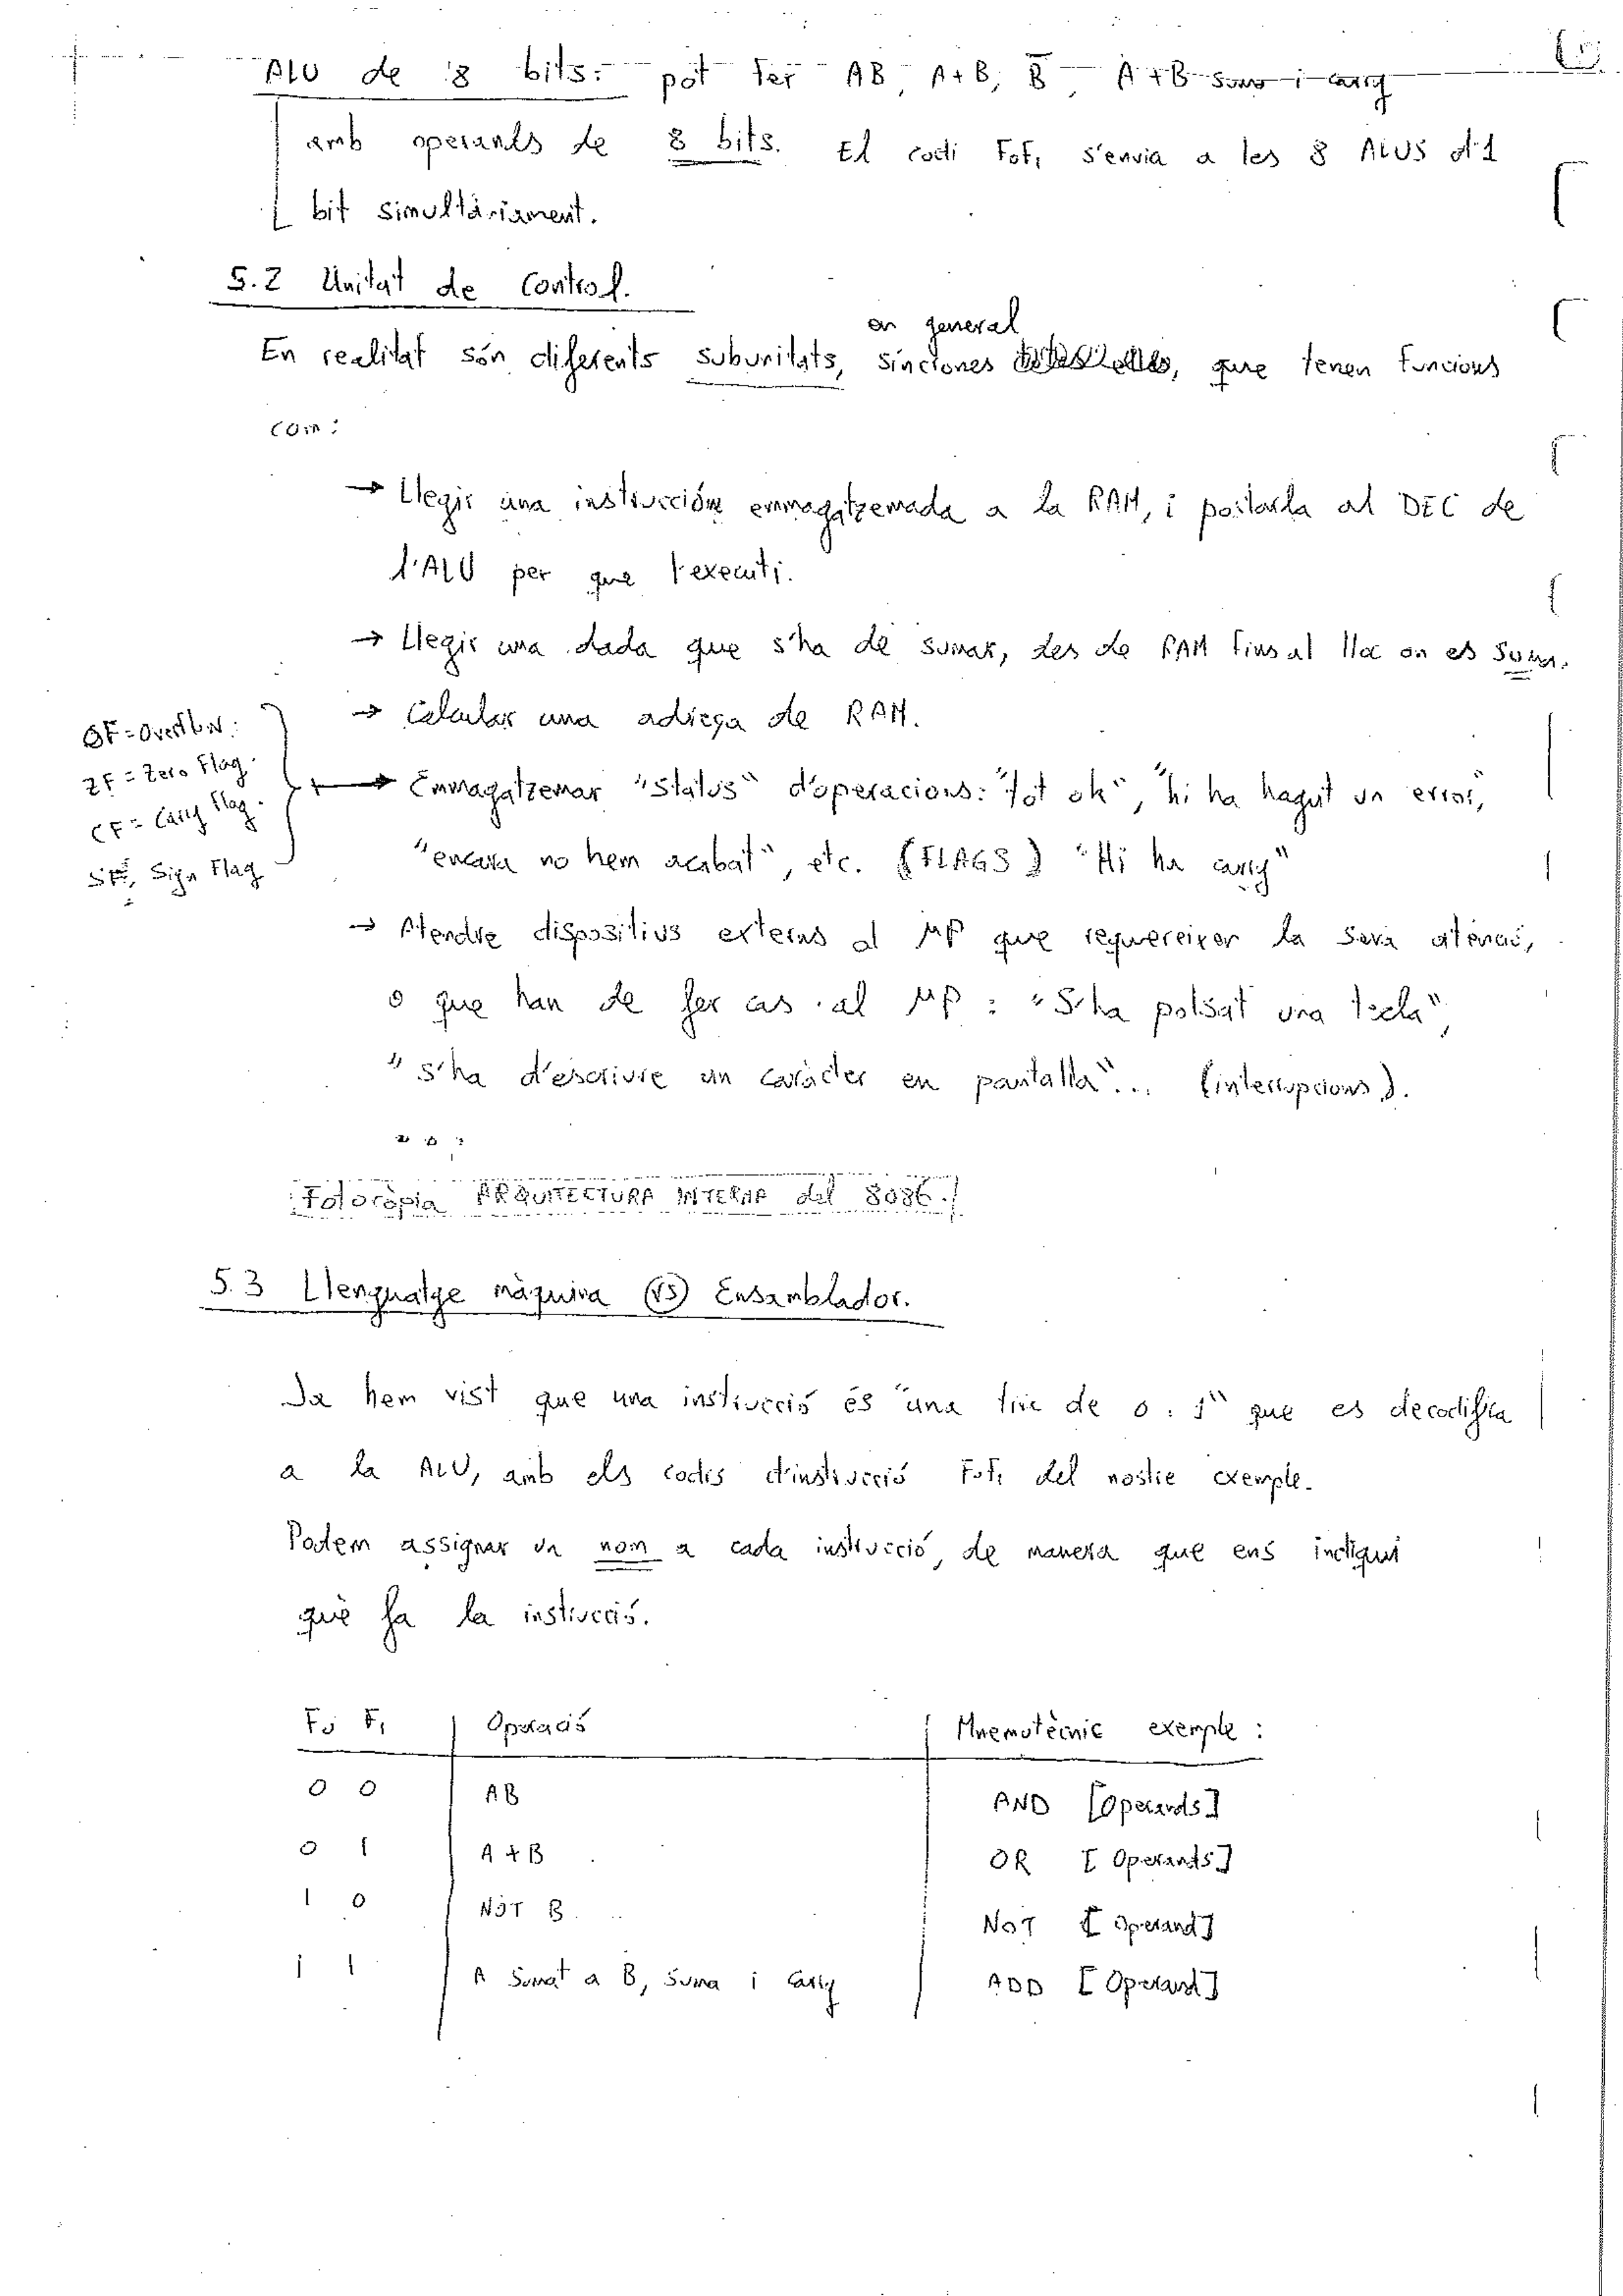 ALU de 8 bits: pot fer AB, A+B, B̅, A+B suma i carry
amb operants de 8 bits. El codi F₀F₁ s'envia a les 8 ALUS d'1
bit simultàniament.
5.2 Unitat de Control.
en general
En realitat són diferents subunitats, síncrones, que tenen funcions
com:
→ Llegir una instrucción emmagatzemada a la RAM, i portarla al DEC de
l'ALU per que l'executi.
→ Llegir una dada que s'ha de sumar, des de RAM fins al lloc on es suma.
→ Calcular una adreça de RAM.
OF = Overflow.
ZF = Zero Flag.
CF = Carry Flag.
SF, Sign Flag
→ Emmagatzemar "Status" d'operacions: "tot ok", "hi ha hagut un error",
"encara no hem acabat", etc. (FLAGS) "Hi ha carry"
→ Atendre dispositius externs al µP que requereixer la seva atenció,
o que han de fer cas al µP: "S'ha polsat una tecla",
"s'ha d'escriure un caràcter en pantalla"... (interrupcions).
...
Fotocòpia ARQUITECTURA INTERNA del 8086.
5.3 Llenguatge màquina (VS) Ensamblador.
Ja hem vist que una instrucció és "una tira de 0 i 1" que es decodifica
a la ALU, amb els codis d'instrucció F₀F₁ del nostre exemple.
Podem assignar un nom a cada instrucció, de manera que ens indiqui
què fa la instrucció.
F₀ F₁ | Operació | Mnemotècnic exemple:
0 0 | AB | AND [Operands]
0 1 | A+B | OR [Operants]
1 0 | NOT B | NOT [Operand]
1 1 | A Sumat a B, Suma i Carry | ADD [Operand]